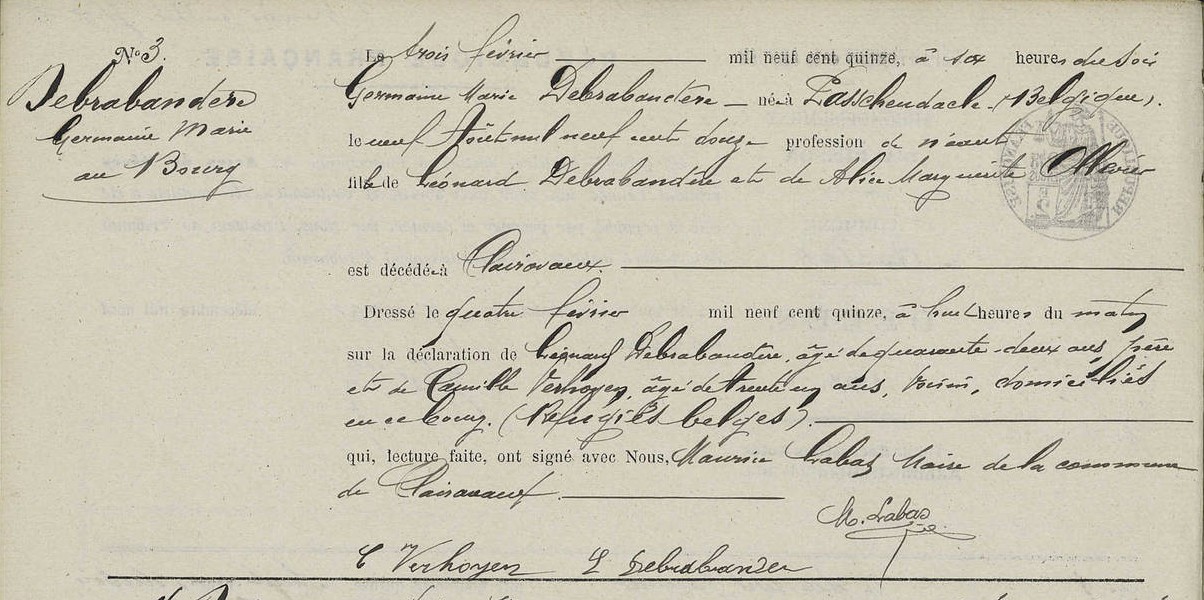 N° 3.
Debrabandere
Germaine Marie
au Bourg
Le trois février mil neuf cent quinze, à six heures du soir
Germaine Marie Debrabandère née à Passchendaele (Belgique).
le neuf Août mil neuf cent douze profession de néant
fille de Léonard Debrabandère et de Alice Marguerite Ollevier
est décédée à Clairavaux.
Dressé le quatre février mil neuf cent quinze, à huit heures du matin
sur la déclaration de Léonard Debrabandère, âgé de quarante-deux ans, père
et de Camille Verhoyen, âgé de trente un ans, voisin, domiciliés
en ce bourg. (Réfugiés belges).
qui, lecture faite, ont signé avec Nous, Maurice Labas Maire de la commune
de Clairavaux.
M. Labas
C Verhoyen L Debrabander